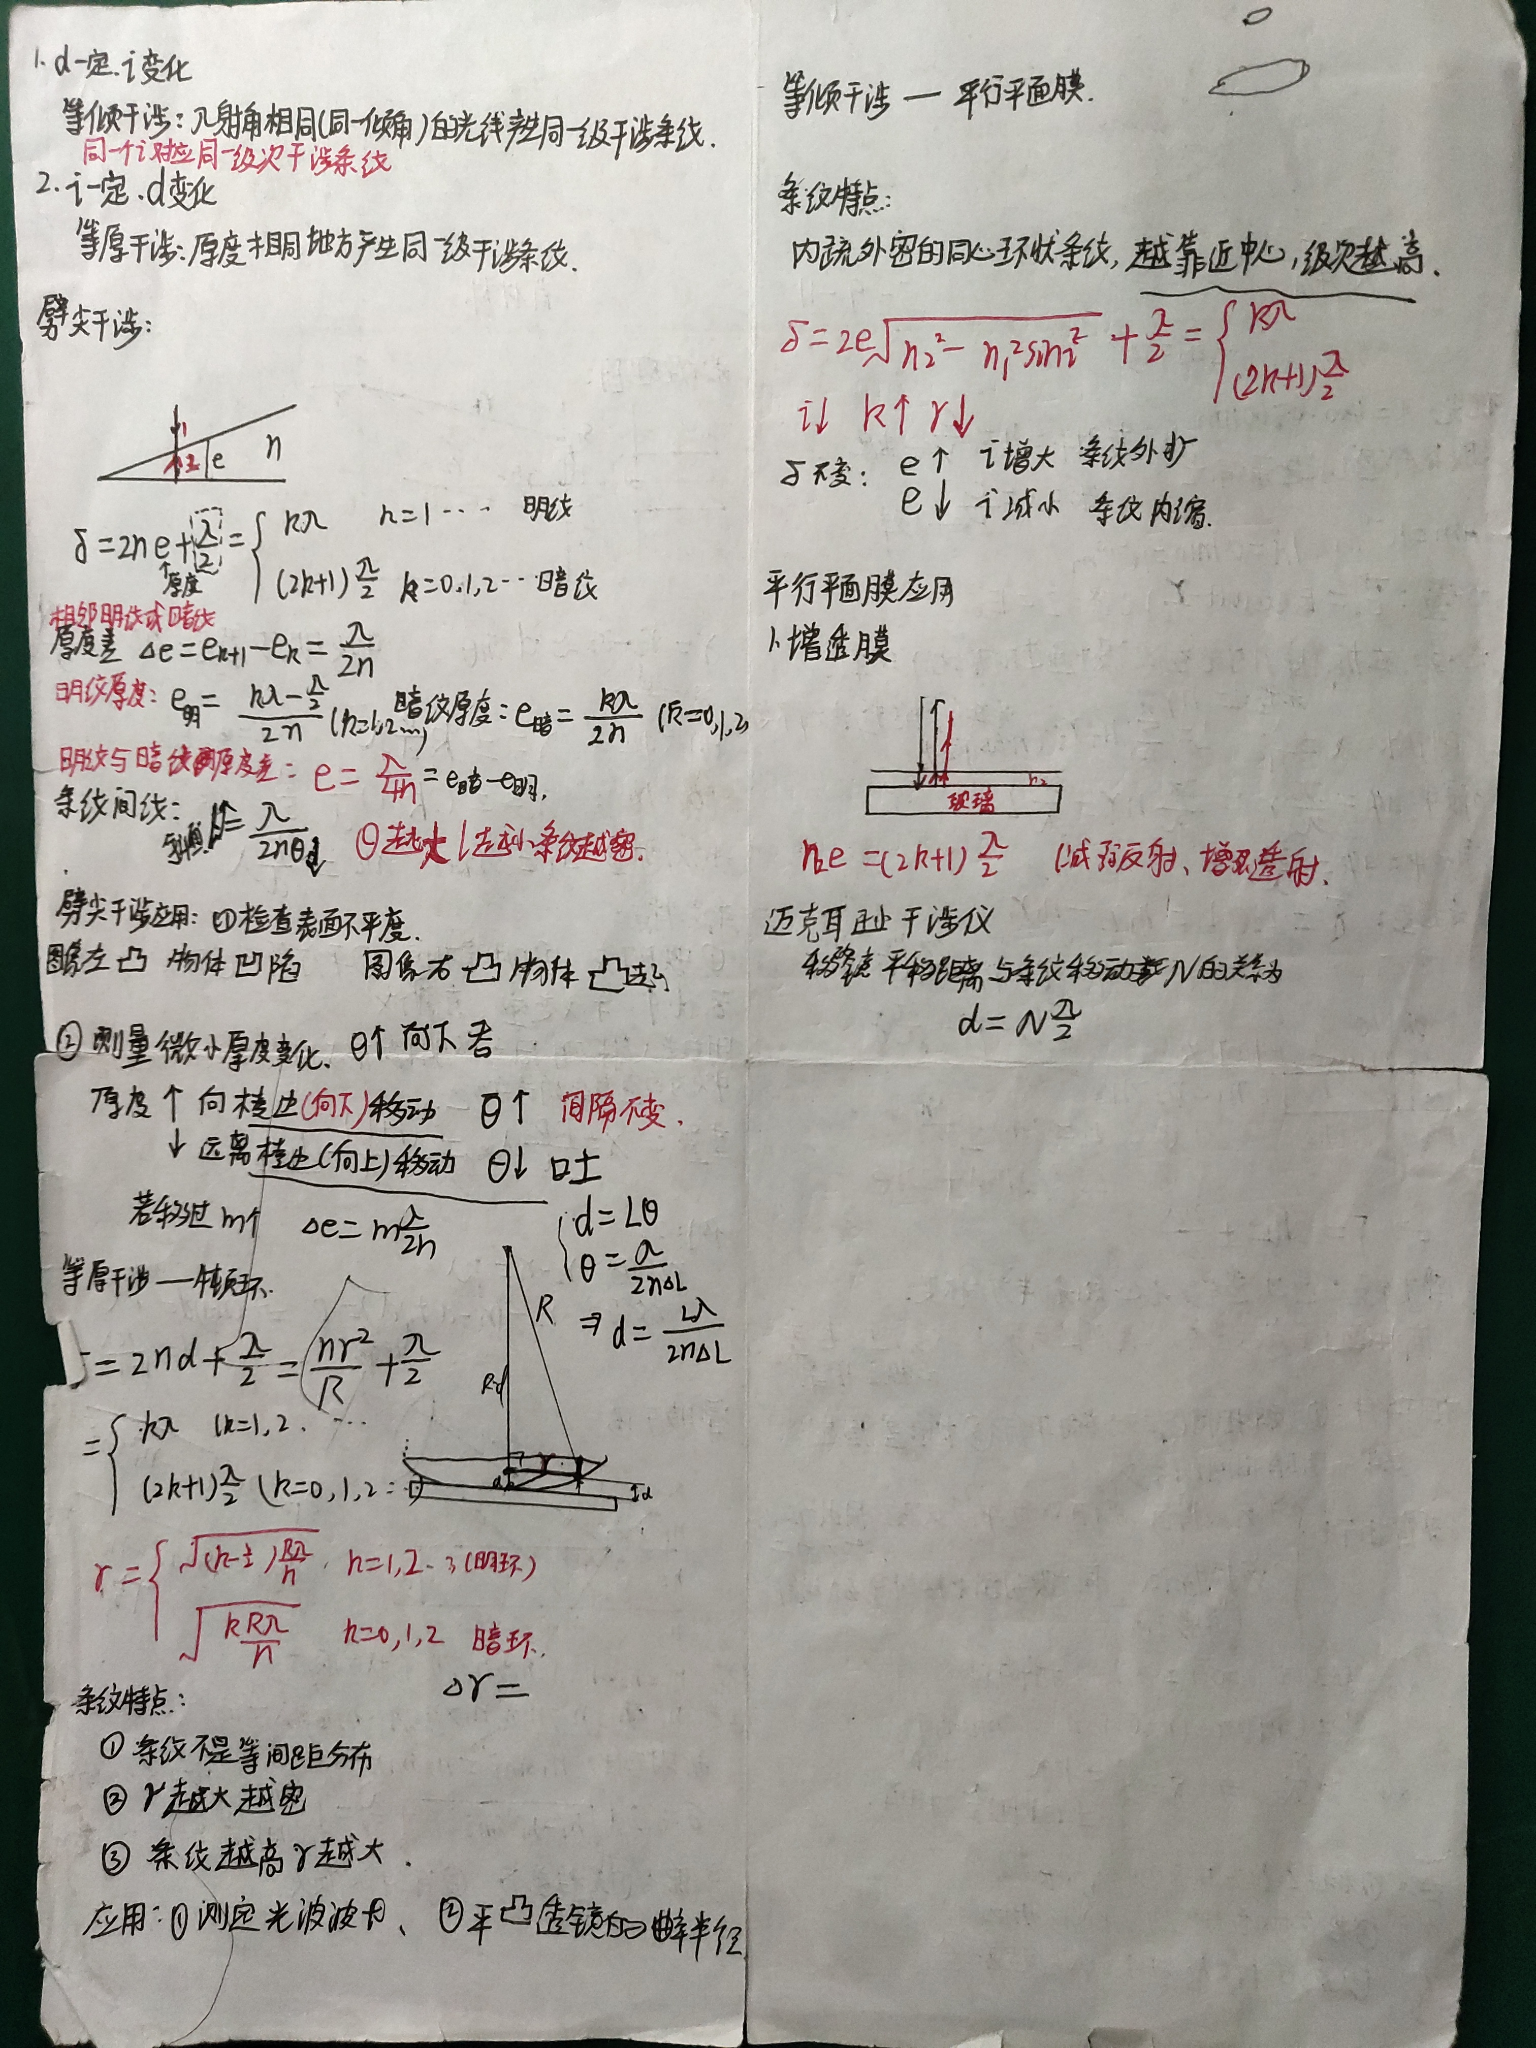 1. d一定.i变化
等倾干涉:入射角相同(同一倾角)的光线产生同一级干涉条纹.
同一个i对应同一级次干涉条纹
2. i一定.d变化
等厚干涉:厚度相同地方产生同一级干涉条纹.
劈尖干涉:
1
2 e n
δ=2ne+λ/2={ kλ k=1… 明纹
(2k+1)λ/2 k=0,1,2… 暗纹
厚度
相邻明纹或暗纹
厚度差 Δe=e_{k+1}-e_k=λ/2n
明纹厚度: e明=(kλ-λ/2)/2n (k=1,2…) 暗纹厚度:e暗=kλ/2n (k=0,1,2
明纹与暗纹厚度差: e=λ/4n=e暗-e明.
条纹间纹: l↑=λ/2nθ↓ θ越大l越小条纹越密.
劈尖干涉应用: ①检查表面不平度.
图像左凸 物体凹陷 图像右凸 物体凸起
② 测量微小厚度变化. θ↑ 向下
厚度↑ 向棱边(向下)移动 θ↑ 间隔不变.
↓ 远离棱边(向上)移动 θ↓
若移过m个 Δe=mλ/2n
{ d=Lθ
θ=λ/2nΔL
⇒ d=Lλ/2nΔL
等厚干涉—牛顿环.
δ=2nd+λ/2=nr²/R+λ/2
={ kλ (k=1,2.…
(2k+1)λ/2 (k=0,1,2…)
R
R-d
r
d
d
r={ √((k-1/2)Rλ/n) k=1,2..3(明环)
√(kRλ/n) k=0,1,2 暗环.
Δr=
条纹特点:
① 条纹不是等间距分布
② r越大越密
③ 条纹越高r越大.
应用:①测定光波波长、②平凸透镜的曲率半径
等倾干涉 — 平行平面膜.
条纹特点:
内疏外密的同心环状条纹,越靠近中心,级次越高.
δ=2e√(n₂²-n₁²sini²)+λ/2={ kλ
(2k+1)λ/2
i↓ k↑ r↓
δ不变: e↑ i增大 条纹外扩
e↓ i减小 条纹内缩.
平行平面膜应用
1.增透膜
n₂
玻璃
n₂e=(2k+1)λ/2 (减弱反射、增强透射.
迈克耳逊干涉仪
移动镜平移距离与条纹移动数N的关系为
d=Nλ/2